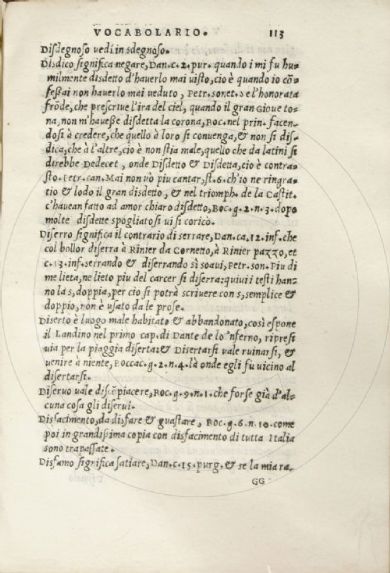 VOCABOLARIO. 113
Disdegnoso uedi in sdegnoso.
Disdico significa negare, Dan. c. 2. pur. quando i mi fu hu-
milmente disdetto d'hauerlo mai uisto, cio è quando io cõ-
fessai non hauerlo mai ueduto, Petr. sonet. 2 e l'honorata
frõde, che prescriue l'ira del ciel, quando il gran Gioue to-
na, non m'hauesse disdetta la corona, Boc. nel prin. facen-
dosi à credere, che quello à loro si conuenga, & non si dis-
dica, che à l'altre, cio è non stia male, quello che da latini si
direbbe Dedecet, onde Disdetto & Disdetta, cio è contra-
sto. Petr. can. Mai non uò piu cantar, st. 6. ch'io ne ringra-
tio & lodo il gran disdetto, & nel triomph. de la Castit.
c'hauean fatto ad amor chiaro disdetto, Boc. g. 2. n. 3. dopo
molte disdette spogliatosi ui si coricò.
Diserro significa il contrario di serrare, Dan. ca. 12. inf. che
col bollor diserra à Rinier da Corneto, à Rinier pazzo, et
c. 13. inf. serrando & diserrando sì soaui, Petr. son. Piu di
me lieta, ne lieto piu del carcer si diserra: quiui i testi han-
no la s, doppia, per cio si potrà scriuere con s, semplice &
doppio, non è usato da le prose.
Diserto è luogo male habitato & abbandonato, così espone
il Landino nel primo cap. di Dante de lo'nferno, ripresi
uia per la piaggia diserta: & Disertarsi uale ruinarsi, &
uenire à niente, Boccac. g. 2. n. 4. là onde egli fu uicino al
disertarsi.
Diseruo uale discõpiacere, Boc. g. 9. n. 1. che forse già d'al-
cuna cosa gli diserui.
Disfacimento, da disfare & guastare, Boc. g. 6. n. 10. come
poi in grandissima copia con disfacimento di tutta Italia
sono trapassate.
Disfamo significa satiare, Dan. c. 15. purg. & se la mia ra-
GG